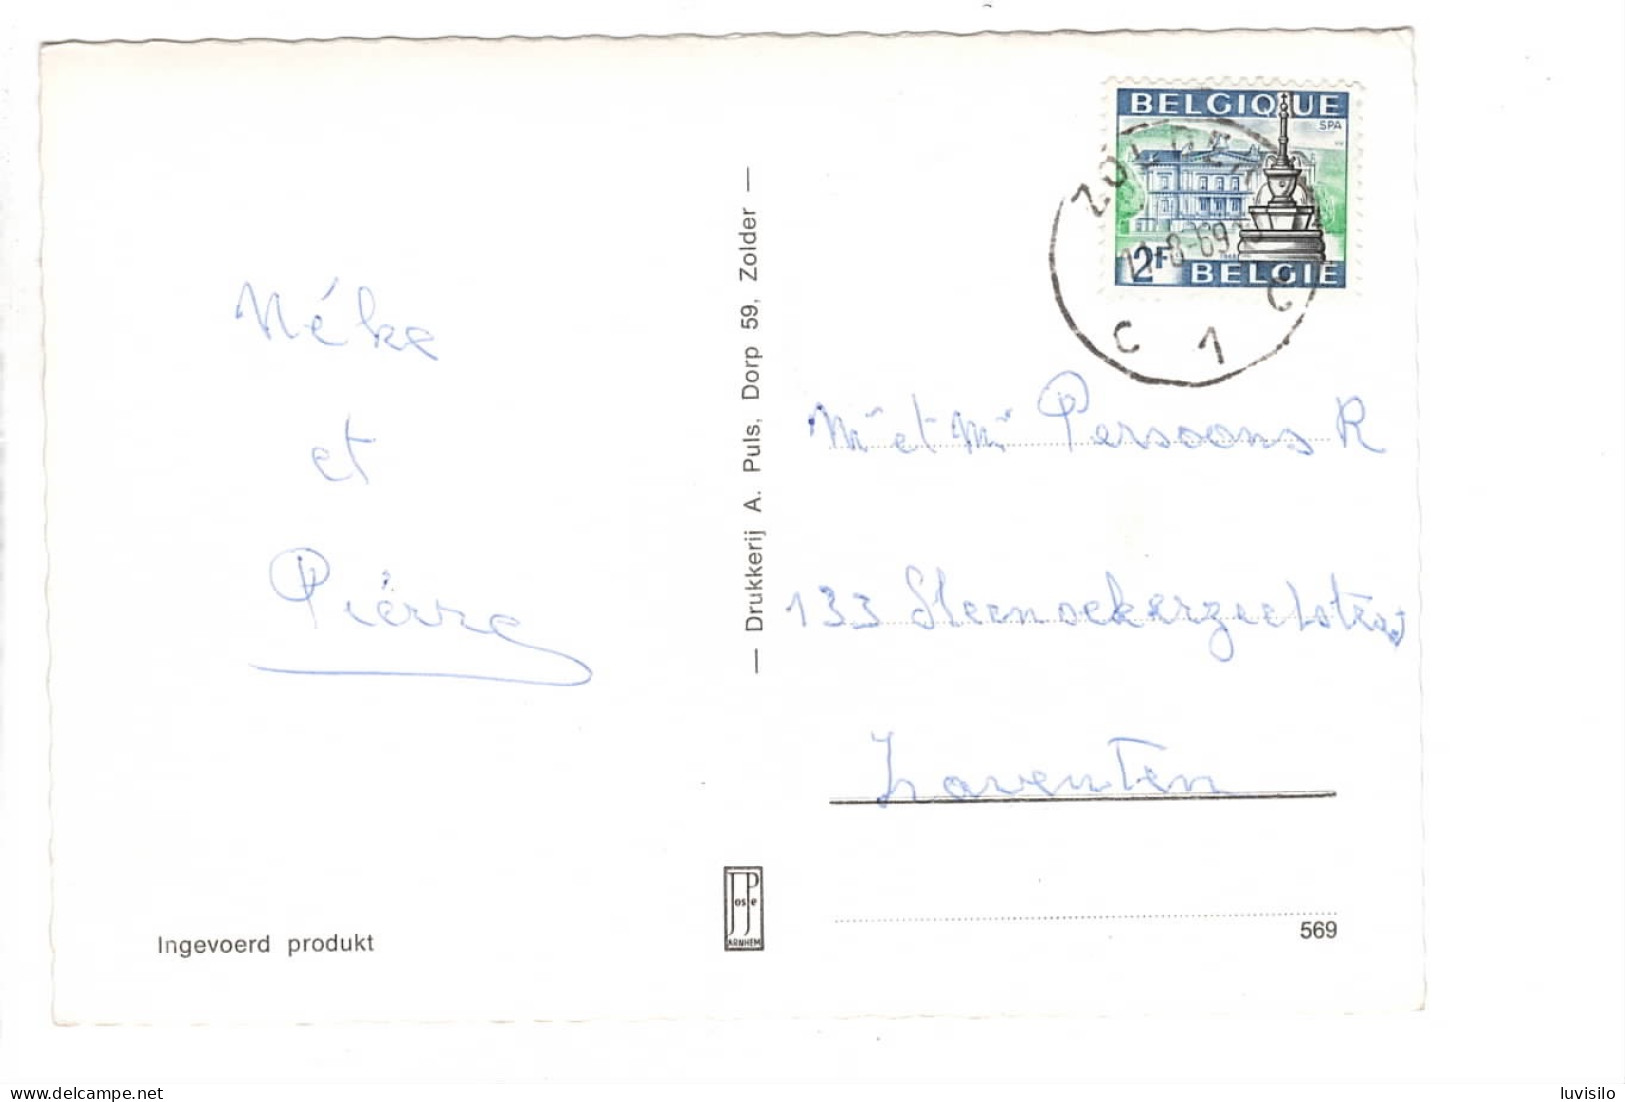 BELGIQUE
SPA
2F
BELGIË
ZOLDER
11-8-69
C 1 C
Néke
et
Piérre
— Drukkerij A. Puls, Dorp 59, Zolder —
Mr et Mr Persoons R
133 Steenockerzeelstra
Zaventen
JosPe
ARNHEM
569
Ingevoerd produkt
www.delcampe.net
luvisilo